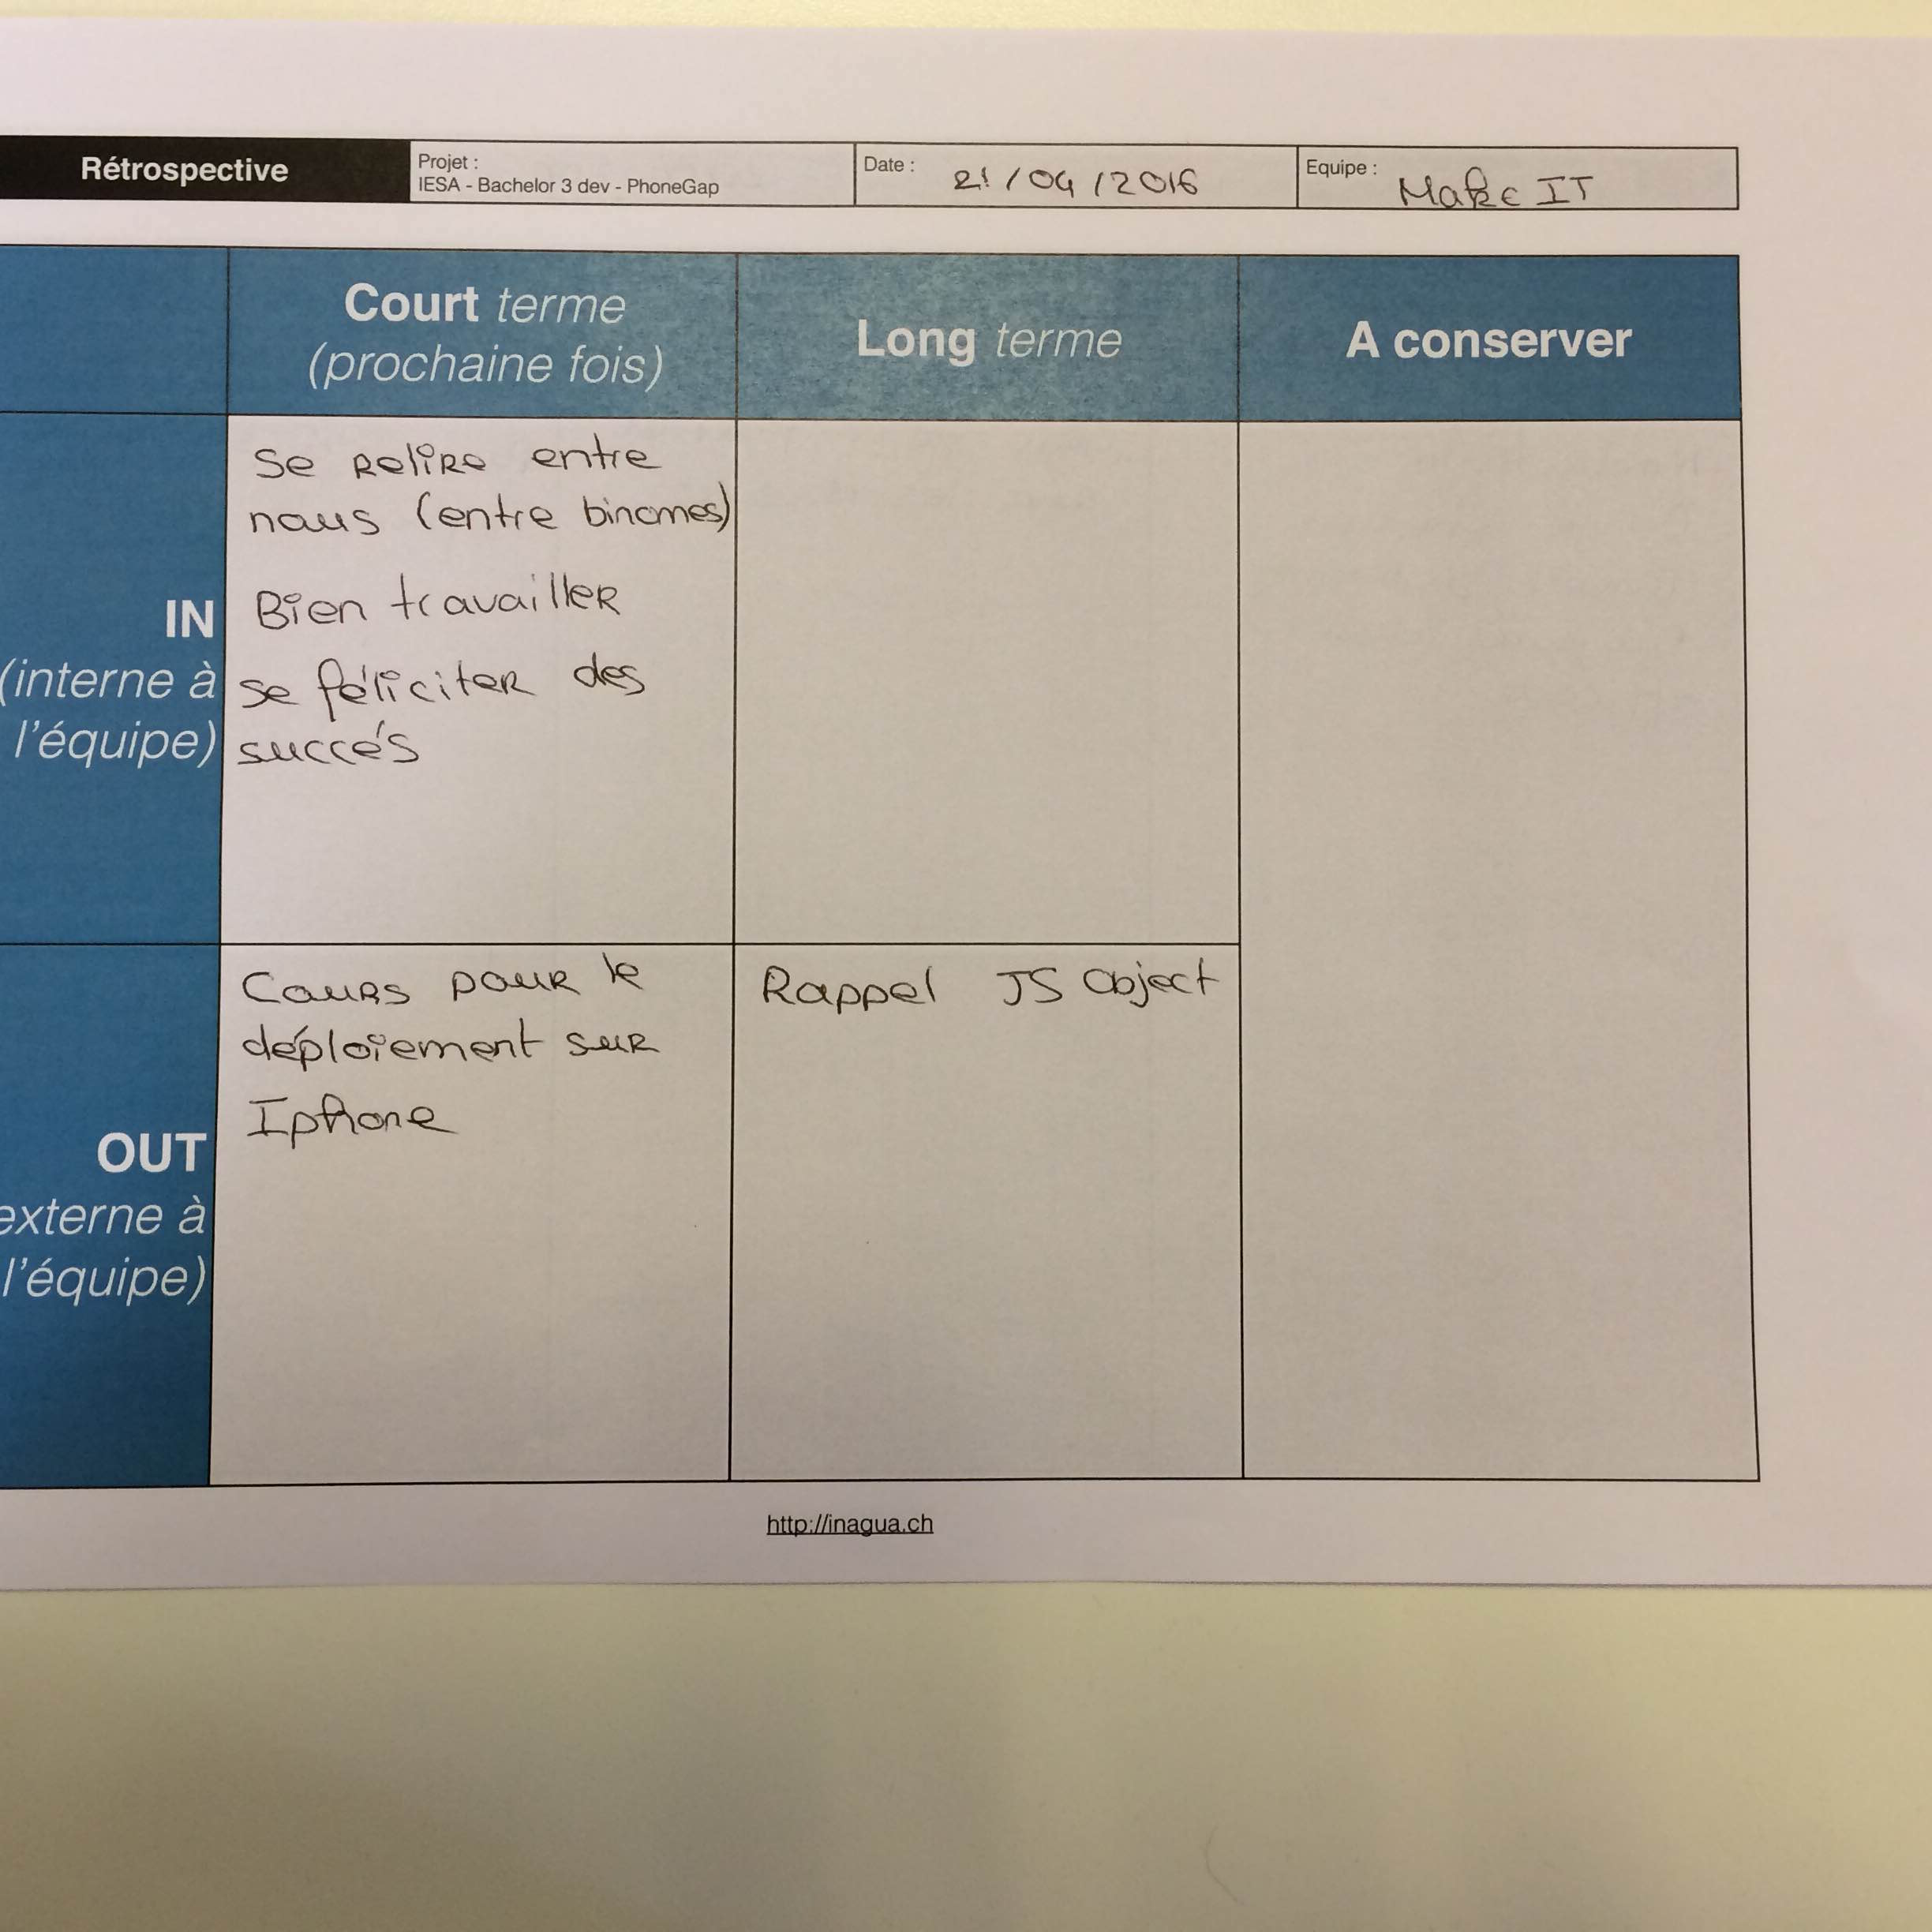 Rétrospective
Projet :
IESA - Bachelor 3 dev - PhoneGap
Date :
21/04/2016
Equipe :
Make IT
Court terme
(prochaine fois)
Long terme
A conserver
IN
(interne à
l'équipe)
Se relire entre
nous (entre binomes)
Bien travailler
se féliciter des
succés
OUT
externe à
l'équipe)
Cours pour le
déploiement sur
Iphone
Rappel JS Object
http://inagua.ch